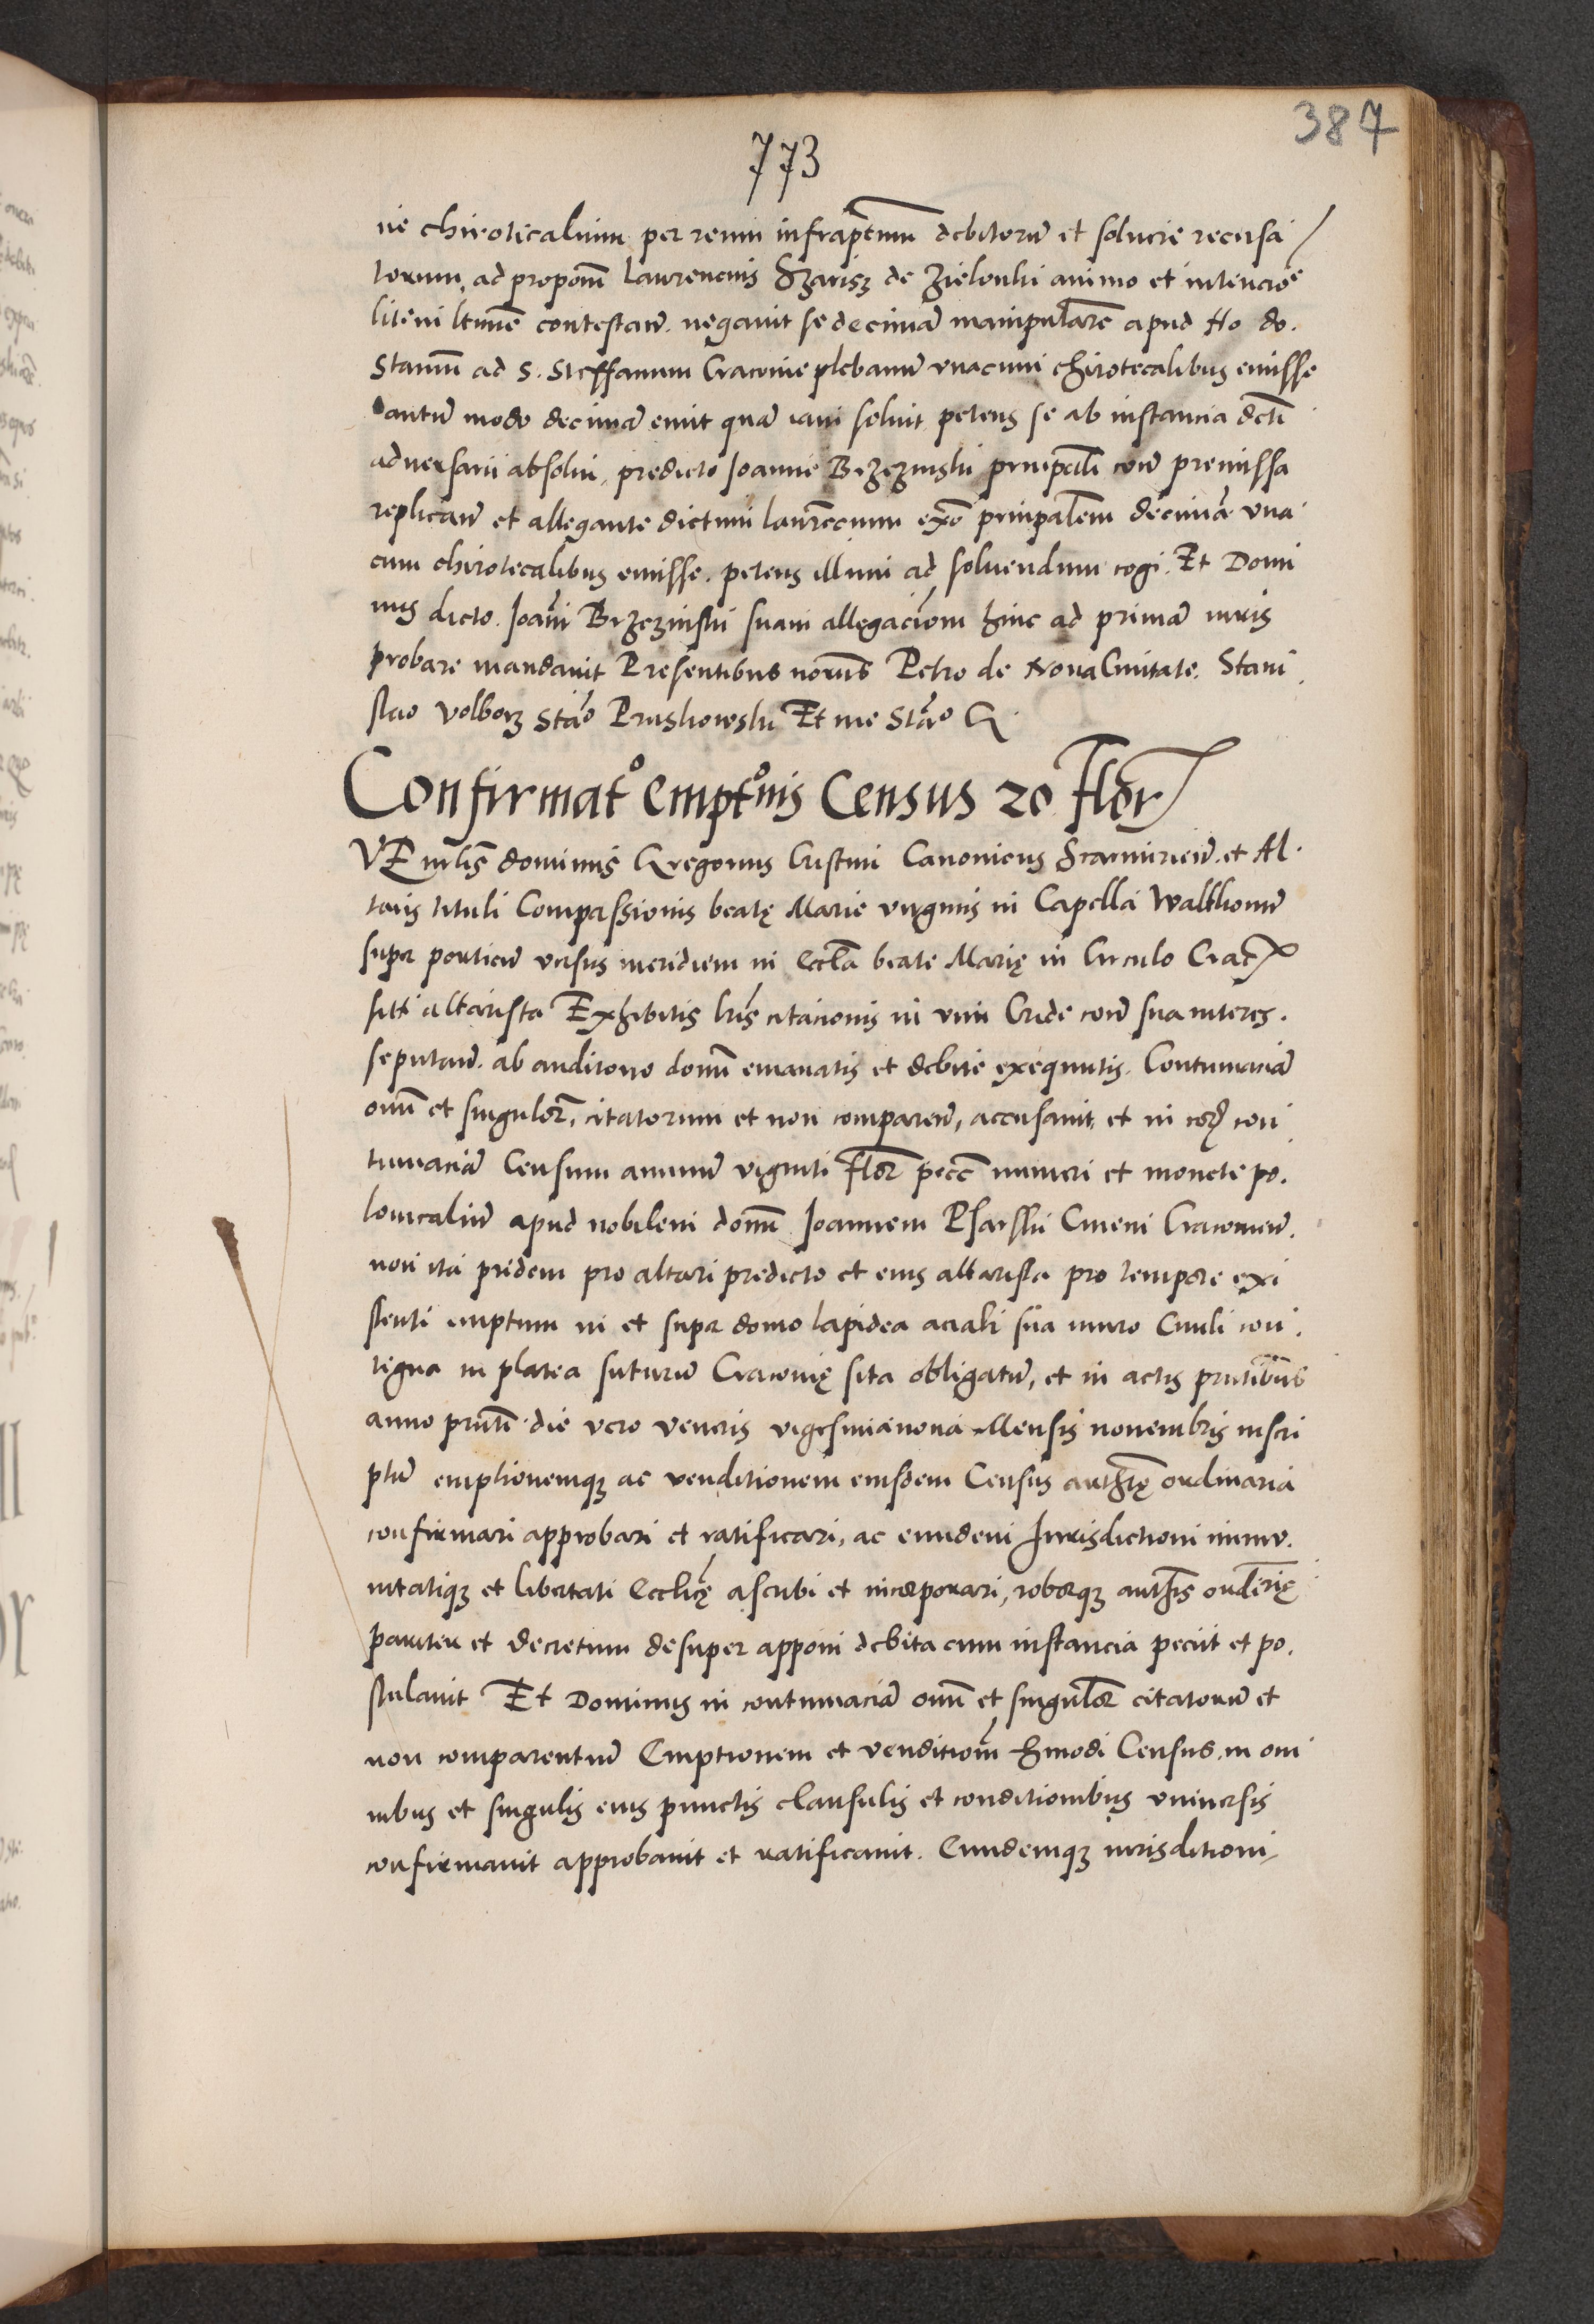 387
773
nie chiroticalium per reum infrascriptum debitorum et solucie recusa
torum, ad proponem Laurencius Szarisz de Zielonki animo et intencioe
litem ltimē contestan. negavit se decimā manipularē apud Ho do.
Stanm̄ ad S. Steffanum Cracovie plebanum unacum chirotecalibus emisse
tantum modo decimā emit quā iam solvit petens se ab instancia dcti
adversarii absolvi, predicto Joanne Brzezinski principali coram premissa
replican et allegante dictum laurencium exō principalem decimā una
cum chirotecalibus emisse. petens illum ad solvendum cogi. Et Domi
nus dicto. Joāni Brzezinski suam allegaciōem hinc ad primā iuris
probare mandavit Presentibus Petro de Nova Civitate. Stani
slao Volborz Stāo Pruskowski Et me Stāo G.
Confirmato emptōnis Census 20 Flor
VEnrlis dominus Gregorius Cristini Canonicus Scarmirien. et Al
taris tituli Compassionis beatę Marie virginis in Capella Walthonum
super porticū versus meridiem in Eccla beate Marię in Circulo Crac
siti altarista Exhibitis lris citacionis in vim Cride coram sua interes.
se putan. ab auditorio domini emanatis et debite exequutis. Contumaciā
omū et singulor, citatorum et non comparen, accusavit, et in eor con
tumaciā Censum annuū viginti Flor pecc numeri et monete po.
lonicaliū apud nobilem domū Joannem Psarski Civem Cracovien.
non ita pridem pro altari predicto et eius altarista pro tempore exi
stenti emptum in et super domo lapidea aciali sua muro Civili con.
tigua in platea sutorum Cracovię sita obligatum, et in actis pruntibus
anno prunti die vero veneris vigesimanona Mensis novembris inscri
ptū emptionemq ac venditionem eiusdem Census authtę ordinaria
confirmari approbari et ratificari, ac eundem Jurisdictioni immu.
nitatiq et libertati Ecclicę ascribi et incorporari, roborq auths ordrię
pariter et decretum desuper apponi debita cum instancia peciit et po.
stulavit Et Dominus in contumaciā omū et singulor citatorū et
non comparentium Emptionem et venditiōm hmodi Census, in om
nibus et singulis eius punctis clausulis et conditionibus universis
confirmavit approbavit et ratificavit. Eundemq iurisditioni